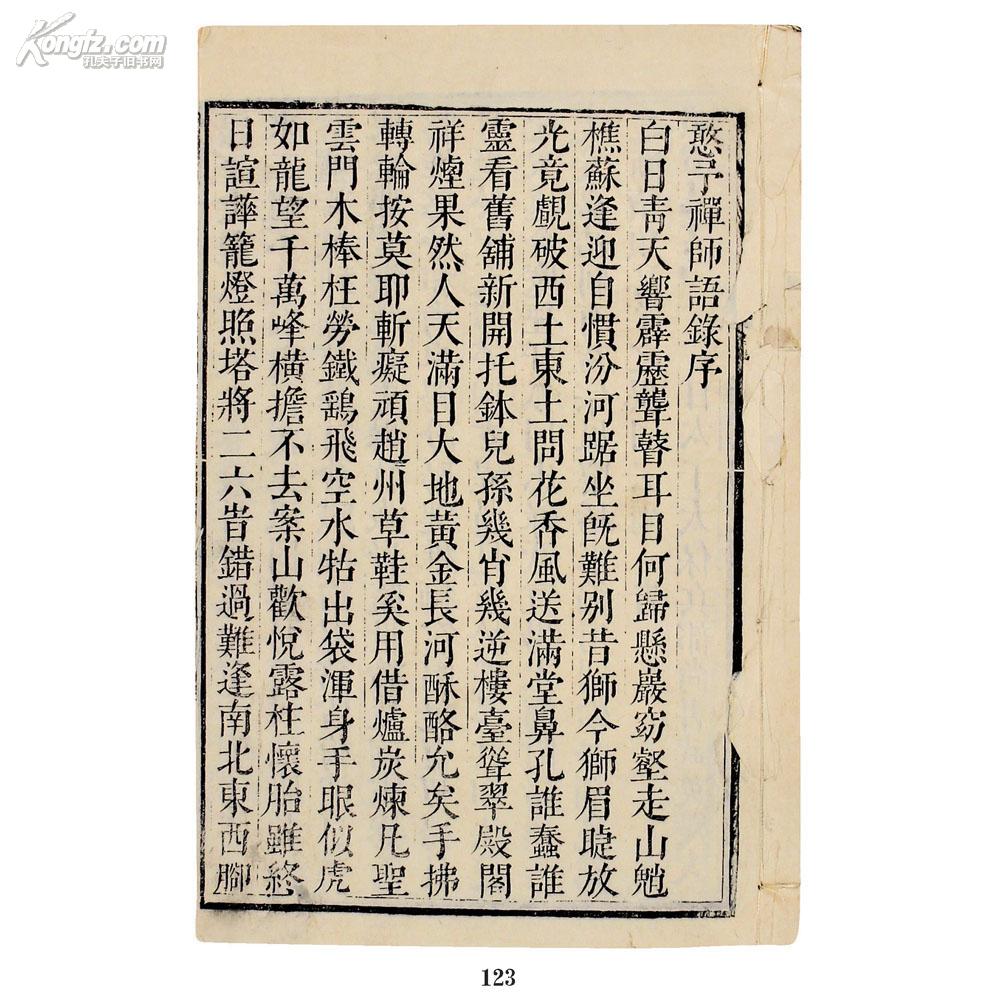 Kongfz.com
孔夫子旧书网
憨予禪師語錄序
白日青天響霹靂聾瞽耳目何歸懸巖窈壑走山魈
樵蘇逢迎自慣汾河踞坐旣難別昔獅今獅眉睫放
光竟覷破西土東土問花香風送滿堂鼻孔誰蠢誰
靈看舊舖新開托鉢兒孫幾肖幾逆樓臺聳翠殿閣
祥煙果然人天滿目大地黃金長河酥酪允矣手拂
轉輪按莫耶斬癡頑趙州草鞋奚用借爐炭煉凡聖
雲門木棒枉勞鐵鷂飛空水牯出袋渾身手眼似虎
如龍望千萬峰橫擔不去案山歡悅露柱懷胎雖終
日諠譁籠燈照塔將二六旹錯過難逢南北東西腳
123